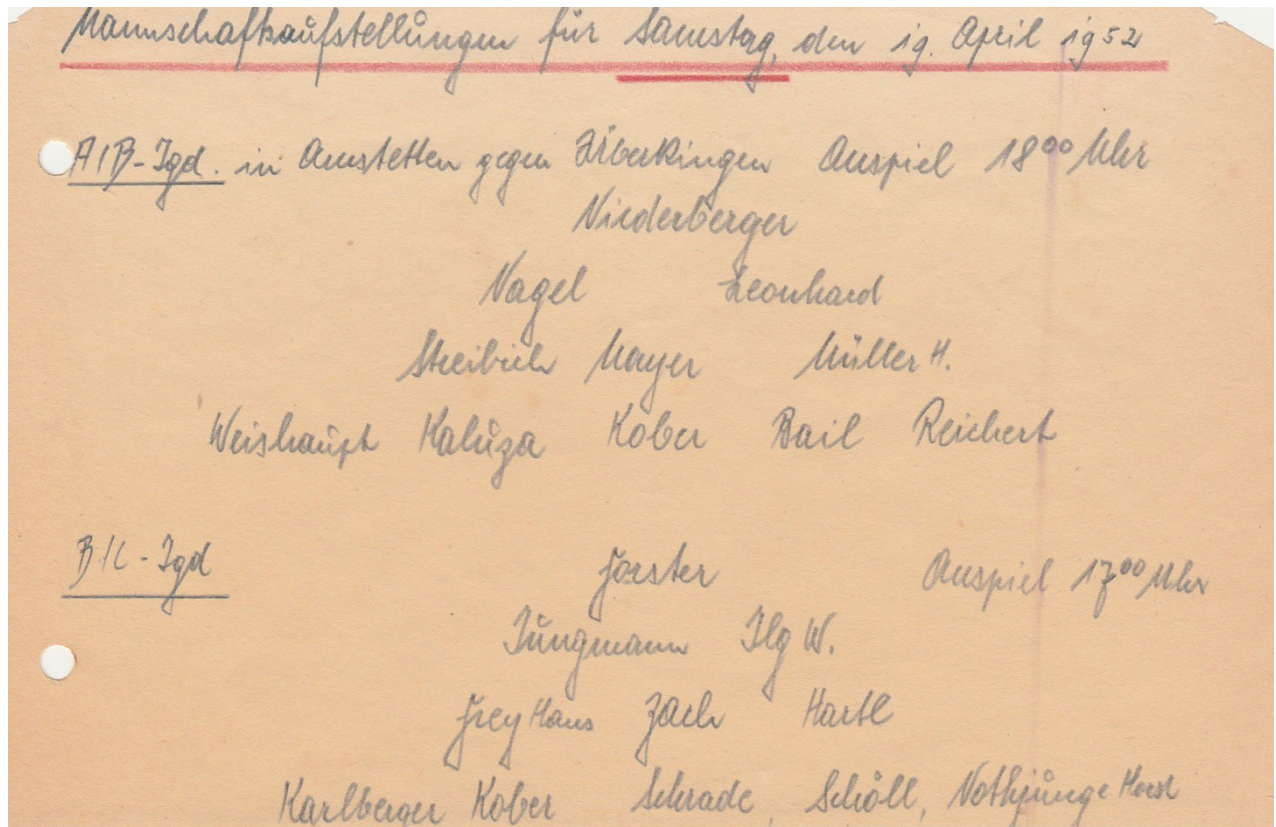 Mannschaftsaufstellungen für Samstag, den 19. April 1952
A/B-Jgd. in Amstetten gegen Überkingen Anspiel 18⁰⁰ Uhr
Niederberger
Nagel Leonhard
Streibich Mayer Müller H.
Weishaupt Kaluza Kober Bail Reichert
B/C-Jgd Forster Anspiel 17⁰⁰ Uhr
Jungmann Ilg W.
Frey Hans Zach Hartl
Karlberger Kober Schrade, Schöll, Nothjunge Horst